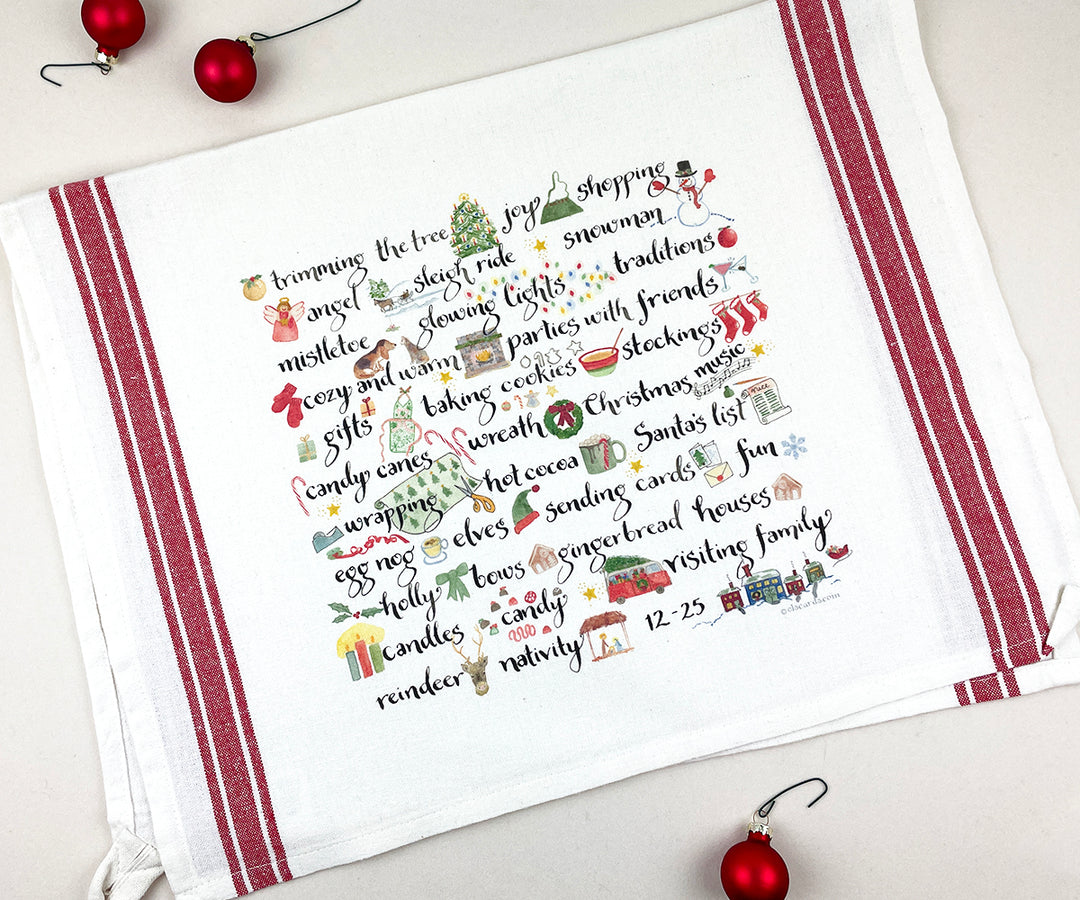 trimming the tree joy shopping
angel sleigh ride snowman
mistletoe glowing lights traditions
cozy and warm parties with friends
gifts baking cookies stockings
candy canes wreath Christmas music
nice
wrapping hot cocoa Santa's list
egg nog elves sending cards fun
holly bows gingerbread houses
candles candy visiting family
reindeer nativity 12-25